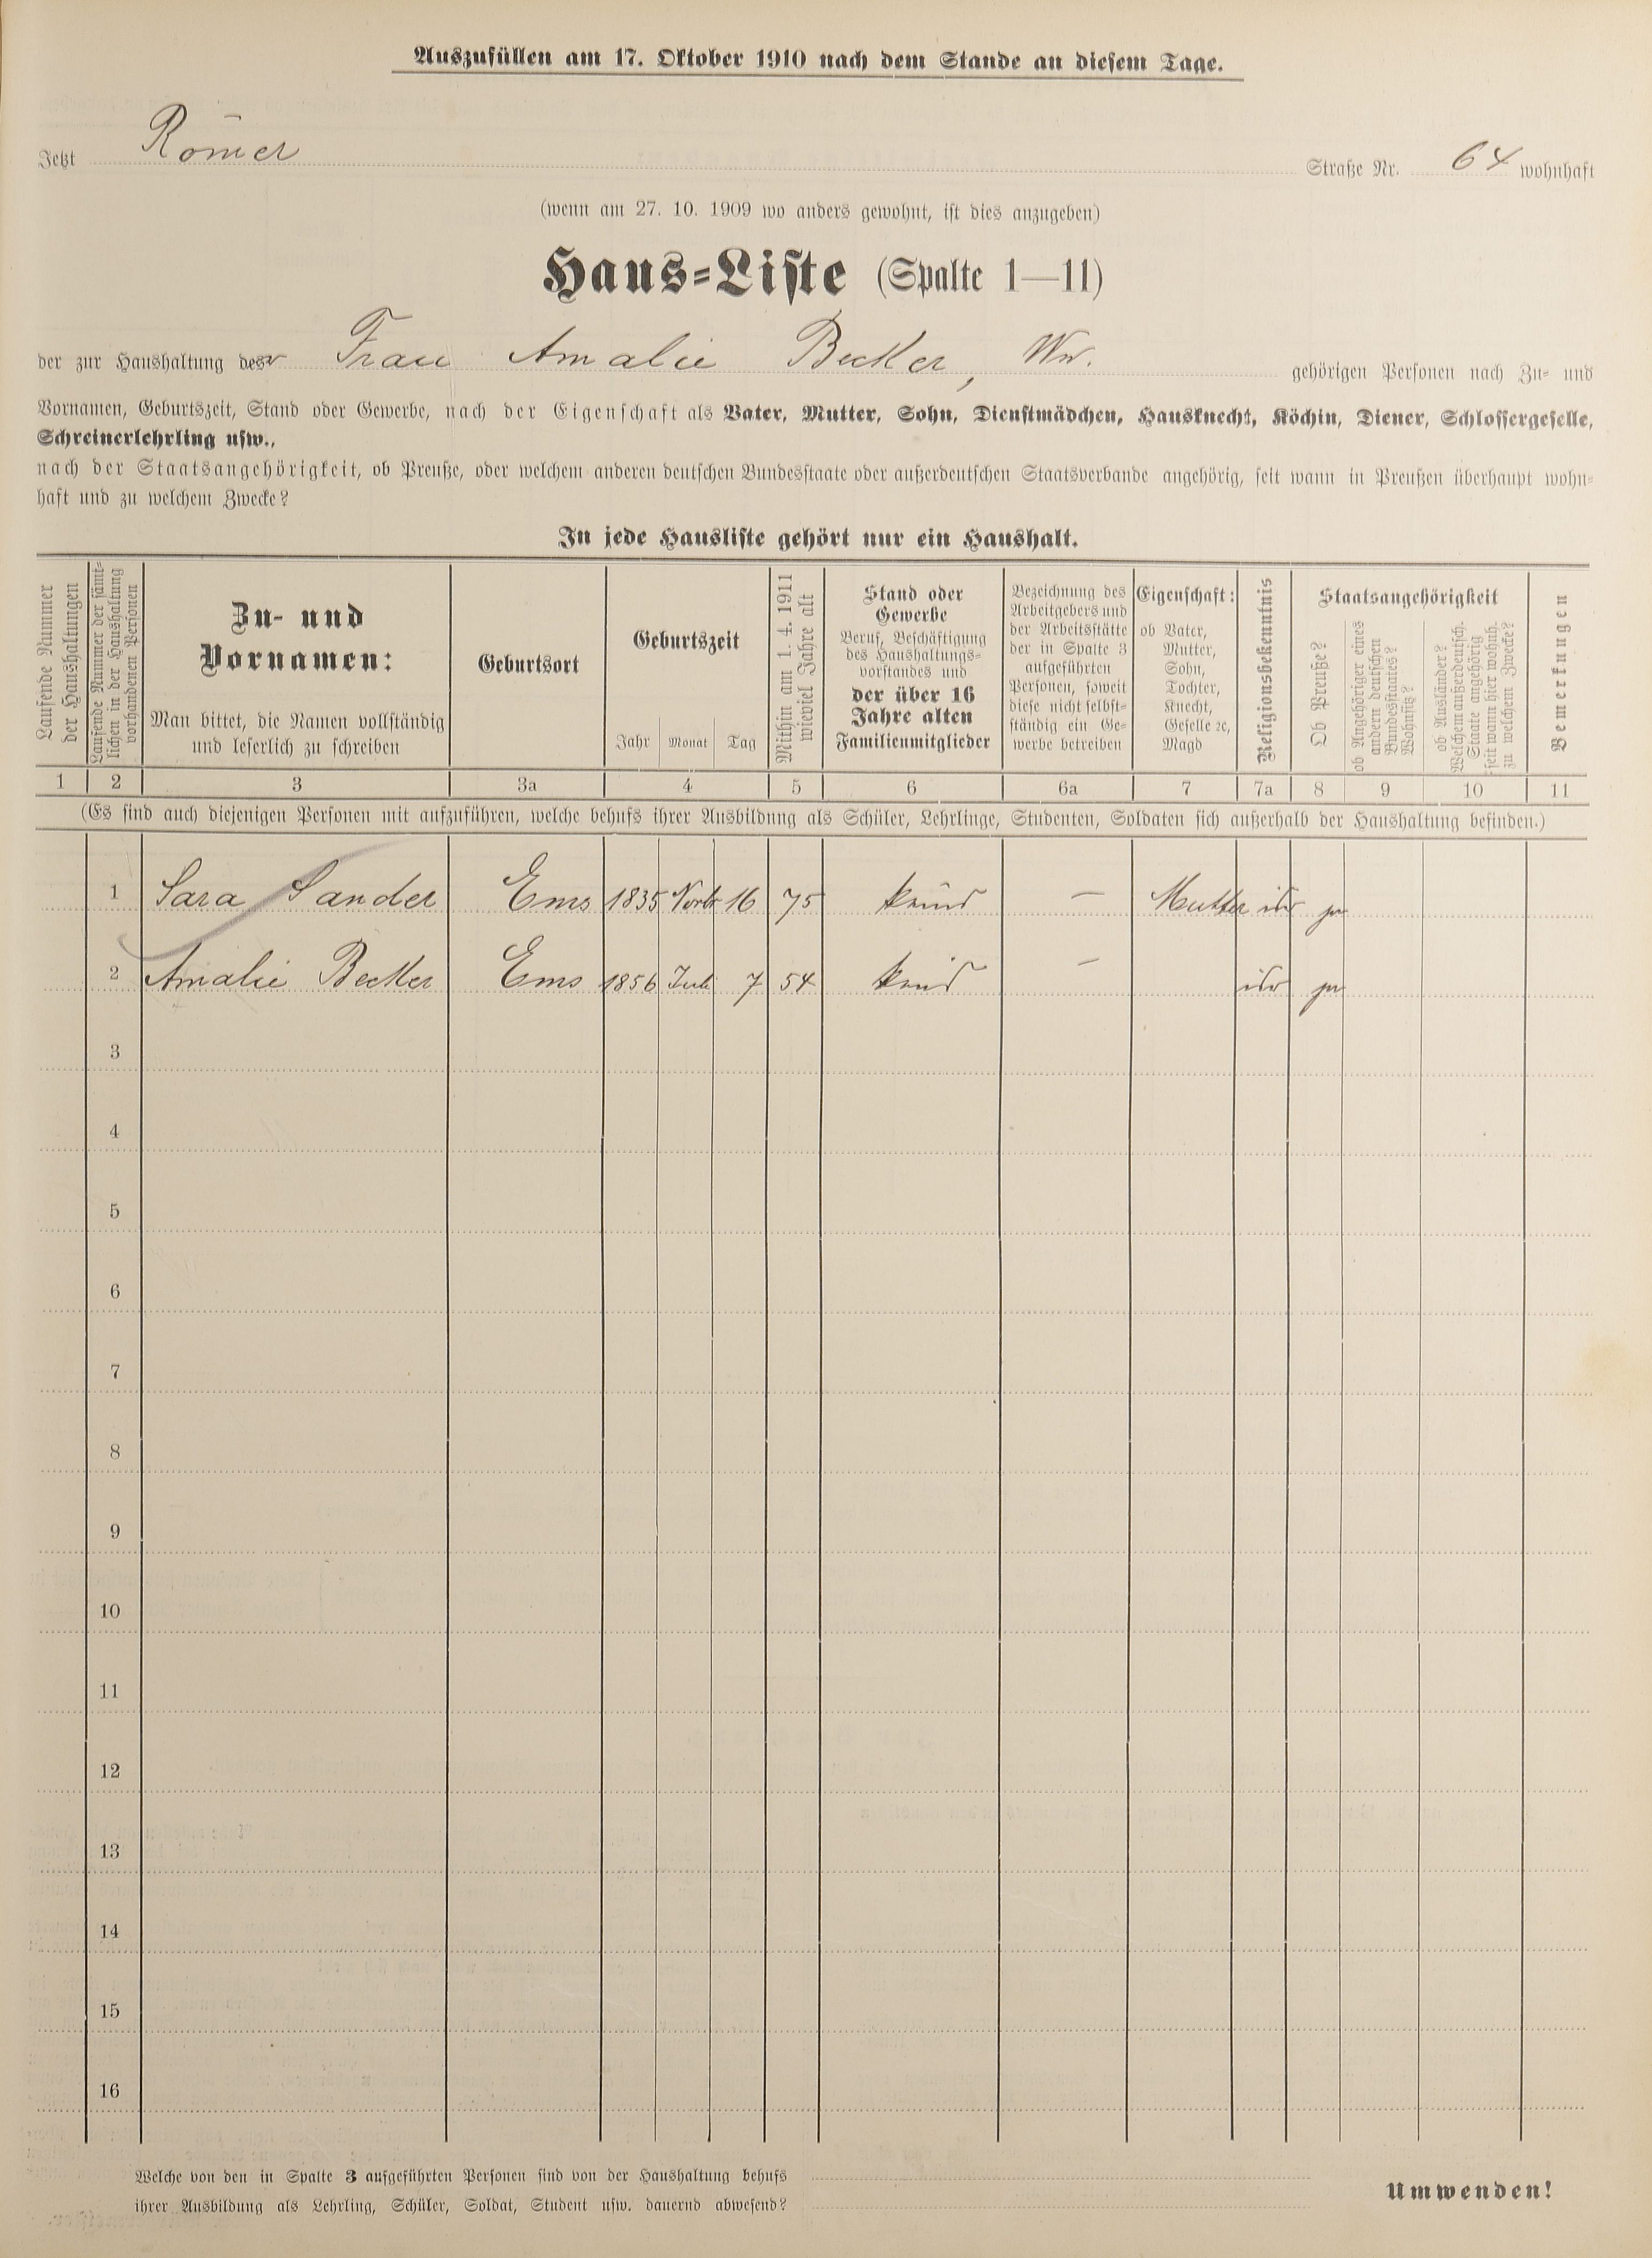 Auszufüllen am 17. Oktober 1910 nach dem Stande an diesem Tage.
Jetzt Römer Straße Nr. 64 wohnhaft
(wenn am 27. 10. 1909 wo anders gewohnt, ist dies anzugeben)
Haus-Liste (Spalte 1—11)
der zur Haushaltung der Frau Amalie Becker, Ww. gehörigen Personen nach Zu- und
Vornamen, Geburtszeit, Stand oder Gewerbe, nach der Eigenschaft als Vater, Mutter, Sohn, Dienstmädchen, Hausknecht, Köchin, Diener, Schlossergeselle,
Schreinerlehrling usw.,
nach der Staatsangehörigkeit, ob Preuße, oder welchem anderen deutschen Bundesstaate oder außerdeutschen Staatsverbande angehörig, seit wann in Preußen überhaupt wohn-
haft und zu welchem Zwecke?
In jede Hausliste gehört nur ein Haushalt.
Laufende Nummer
der Haushaltungen
Laufende Nummer der sämt-
lichen in der Haushaltung
vorhandenen Personen
Zu- und
Vornamen:
Man bittet, die Namen vollständig
und leserlich zu schreiben
Geburtsort
Geburtszeit
Jahr Monat Tag
Mithin am 1. 4. 1911
wieviel Jahre alt
Stand oder
Gewerbe
Beruf, Beschäftigung
des Haushaltungs-
vorstandes und
der über 16
Jahre alten
Familienmitglieder
Bezeichnung des
Arbeitgebers und
der Arbeitsstätte
der in Spalte 3
aufgeführten
Personen, soweit
diese nicht selbst-
ständig ein Ge-
werbe betreiben
Eigenschaft:
ob Vater,
Mutter,
Sohn,
Tochter,
Knecht,
Geselle ec,
Magd
Religionsbekenntnis
Staatsangehörigkeit
Ob Preuße?
ob Angehöriger eines
andern deutschen
Bundesstaates?
Wohnsitz?
ob Ausländer?
Welchem außerdeutsch.
Staate angehörig
seit wann hier wohnh.
zu welchem Zwecke?
Bemerkungen
1 2 3 3a 4 5 6 6a 7 7a 8 9 10 11
(Es sind auch diejenigen Personen mit aufzuführen, welche behufs ihrer Ausbildung als Schüler, Lehrlinge, Studenten, Soldaten sich außerhalb der Haushaltung befinden.)
1 Sara Sander Ems 1835 Novbr 16 75 — Mutter isr ja
2 Amalie Becker Ems 1856 Juli 7 54 — isr ja
3
4
5
6
7
8
9
10
11
12
13
14
15
16
Welche von den in Spalte 3 aufgeführten Personen sind von der Haushaltung behufs
ihrer Ausbildung als Lehrling, Schüler, Soldat, Student usw. dauernd abwesend?
Umwenden!